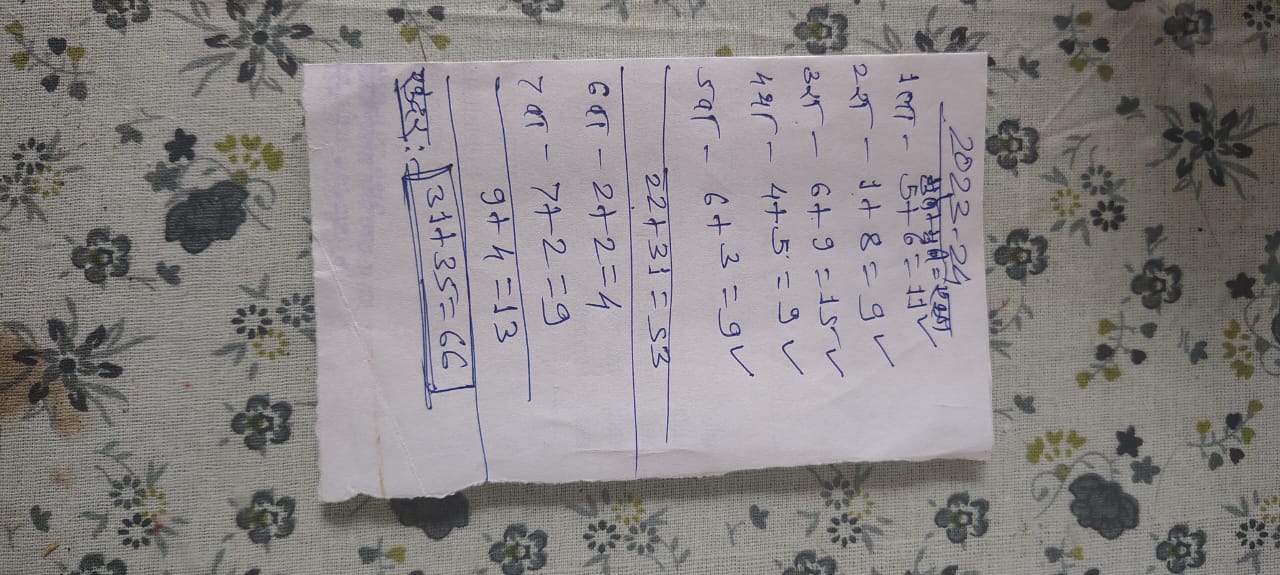 2023-24
1ली - 5+6=11✓
2री - 1+8=9✓
3री - 6+9=15✓
4थी - 4+5=9✓
5वी - 6+3=9✓
22+31=53
6वी - 2+2=4
7वी - 7+2=9
9+4=13
एकूण: 31+35=66